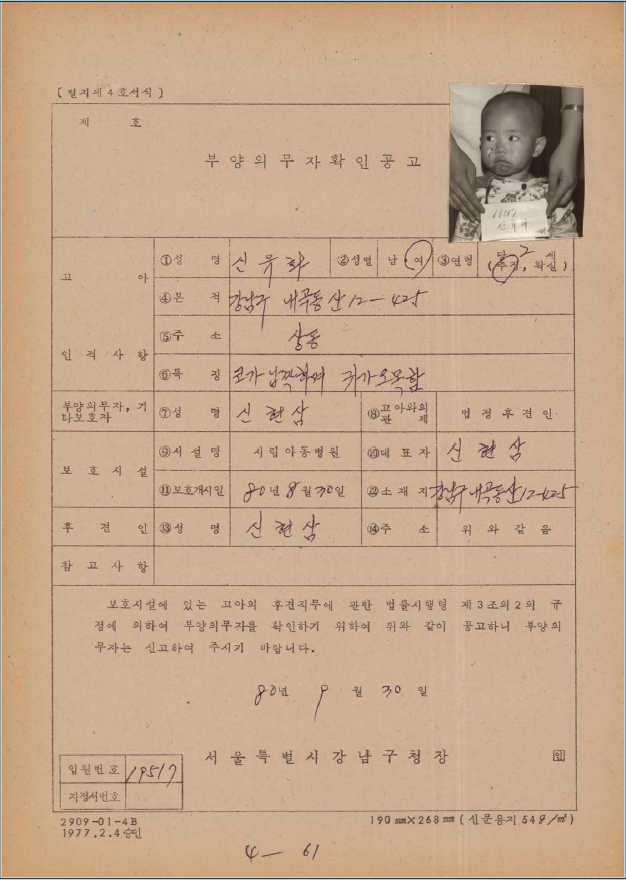 [별지제4호서식]
제 호
부양의무자확인공고
고아
인적사항
①성 명 신유화 ②성별 남 여 ③연령 만 2 세 (추정, 확실)
④본 적 강남구 내곡동 산12-425
⑤주 소 상동
⑥특 징 코가 납짝하며 귀가 오목함
부양의무자, 기타보호자
⑦성 명 신현삼 ⑧고아와의 관계 법정후견인
보호시설
⑨시설명 시립아동병원 ⑩대표자 신현삼
⑪보호개시일 80년 8월 30일 ⑫소재지 강남구 내곡동 산12-425
후견인 ⑬성 명 신현삼 ⑭주 소 위와같음
참고사항
보호시설에 있는 고아의 후견직무에 관한 법률시행령 제3조의2의 규
정에 의하여 부양의무자를 확인하기 위하여 위와 같이 공고하니 부양의
무자는 신고하여 주시기 바랍니다.
80년 9월 30일
서울특별시강남구청장 인
입원번호 19517
지정서번호
2909-01-4B
1977.2.4승인
190㎜×268㎜(신문용지 54g/㎡)
4-61